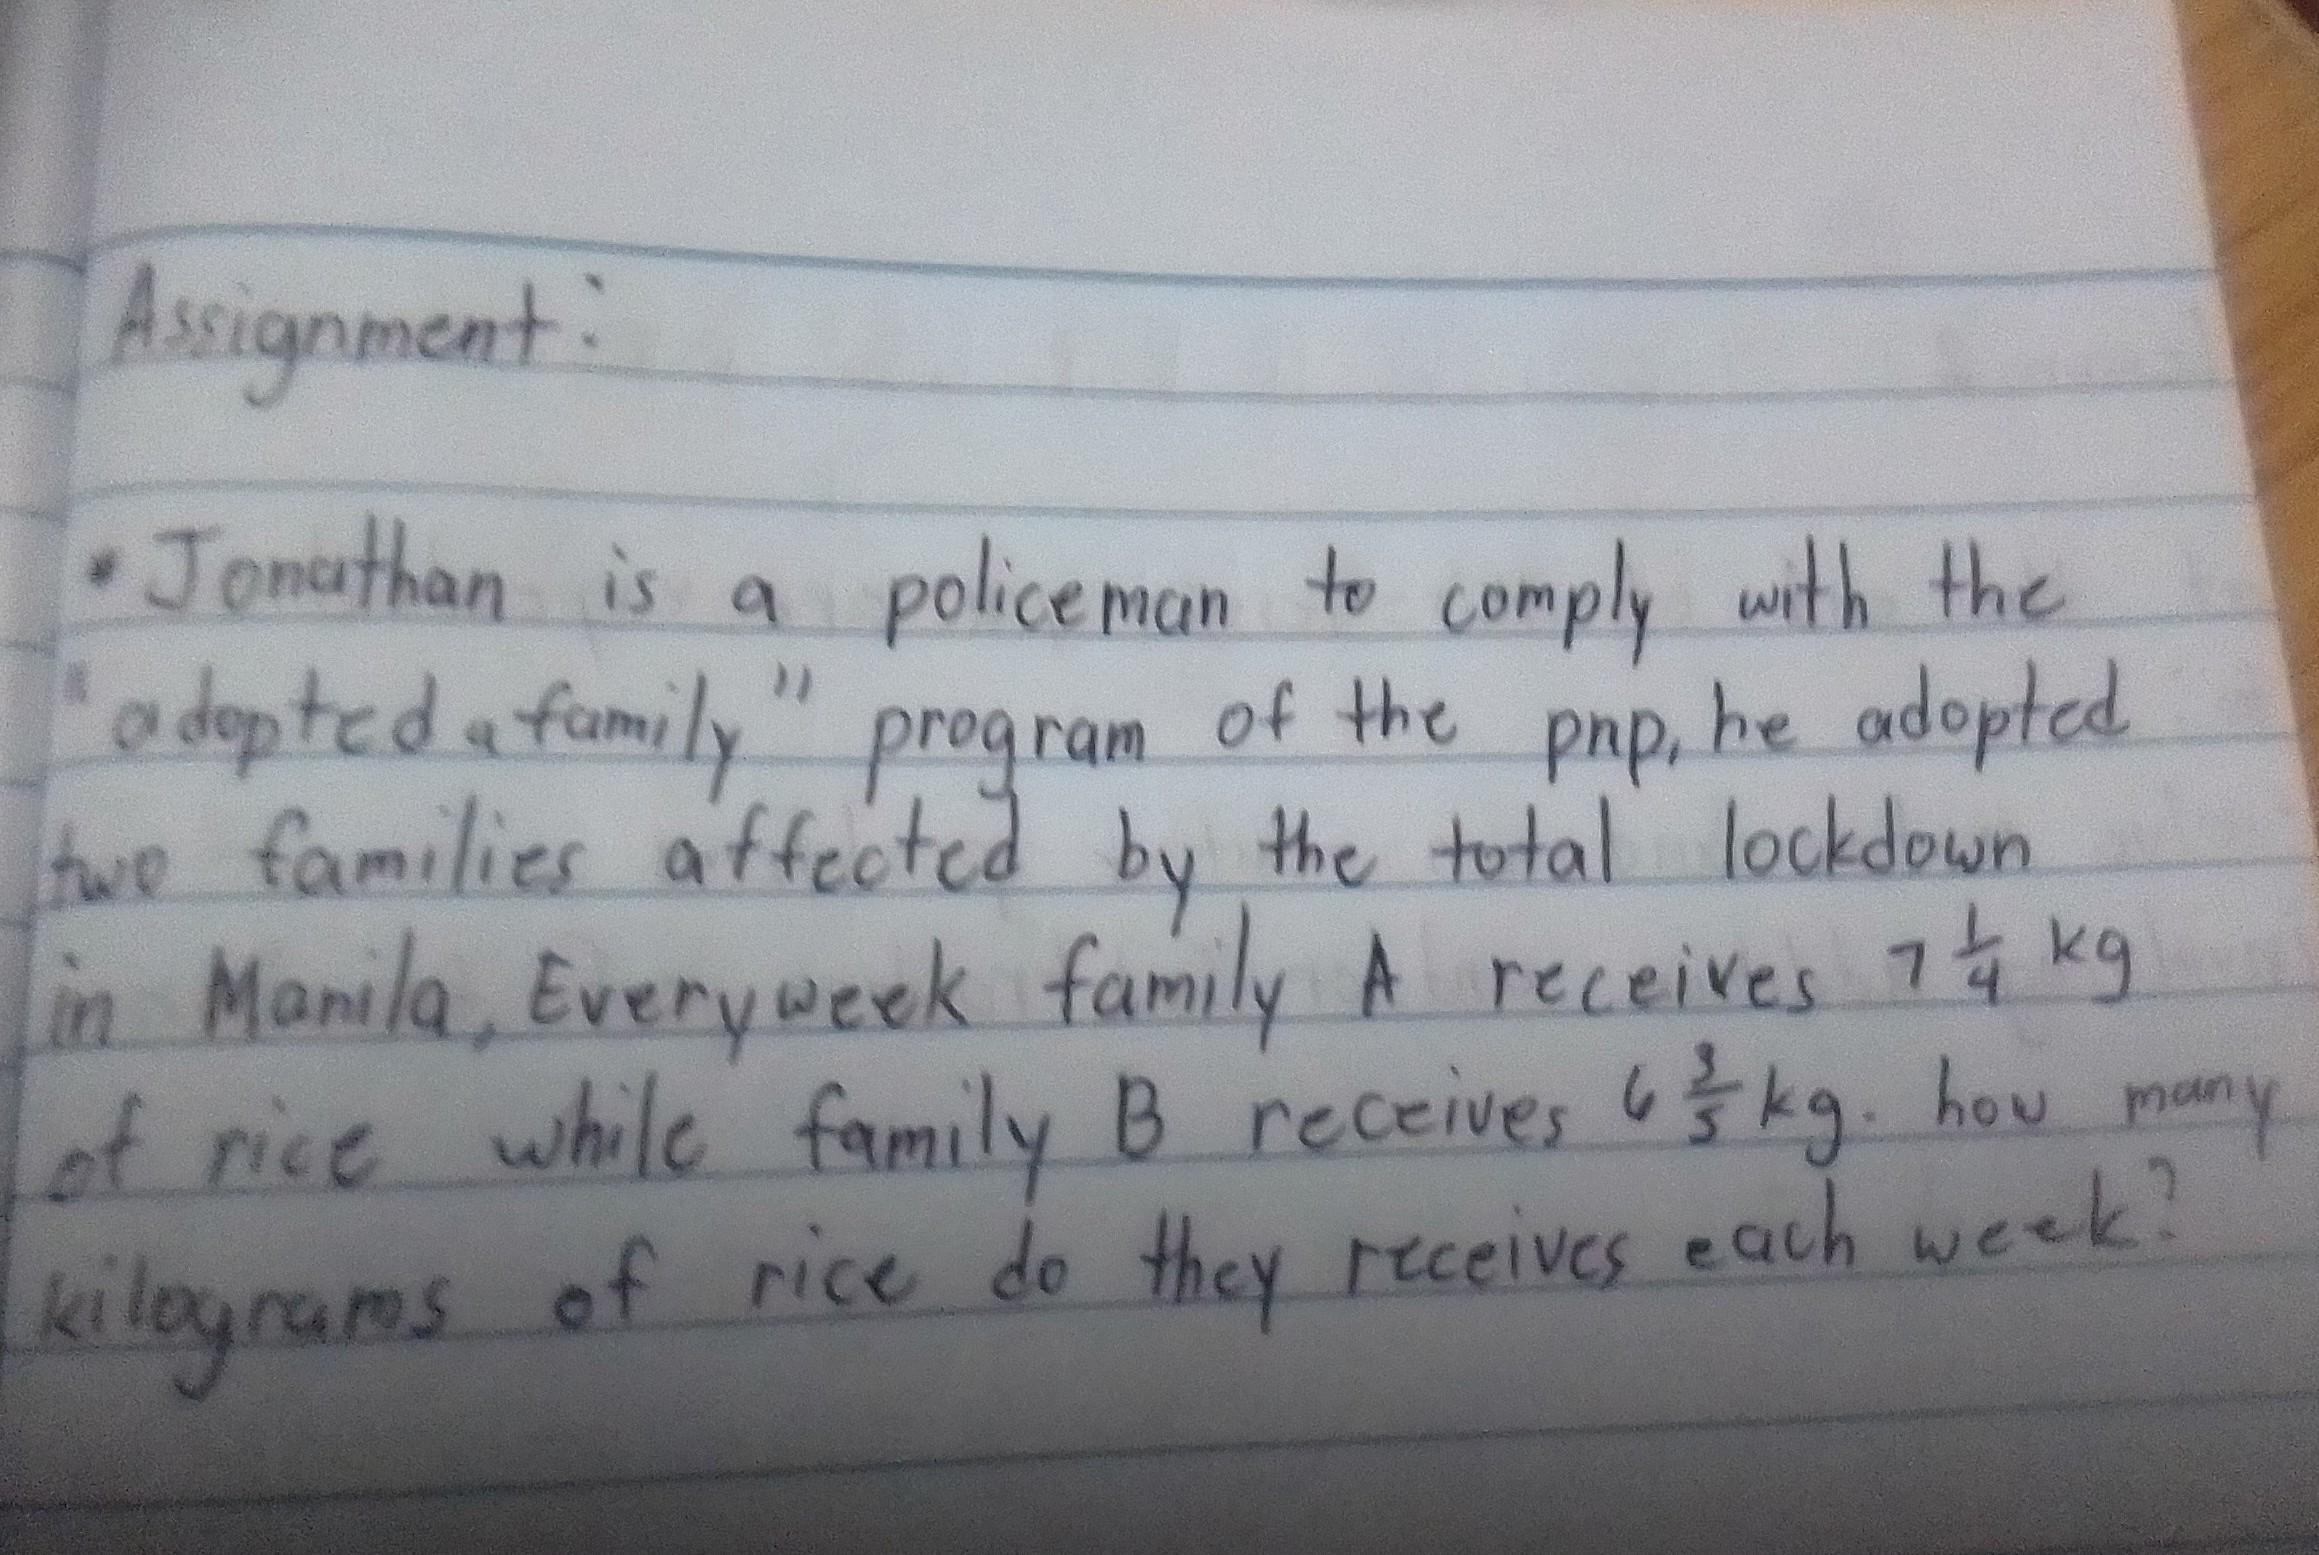 Assignment:
• Jonathan is a policeman to comply with the
"adopted a family" program of the pnp, he adopted
two families affected by the total lockdown
in Manila, Everyweek family A receives 7 1/4 kg
of rice while family B receives 6 3/5 kg. how many
kilograms of rice do they receives each week?